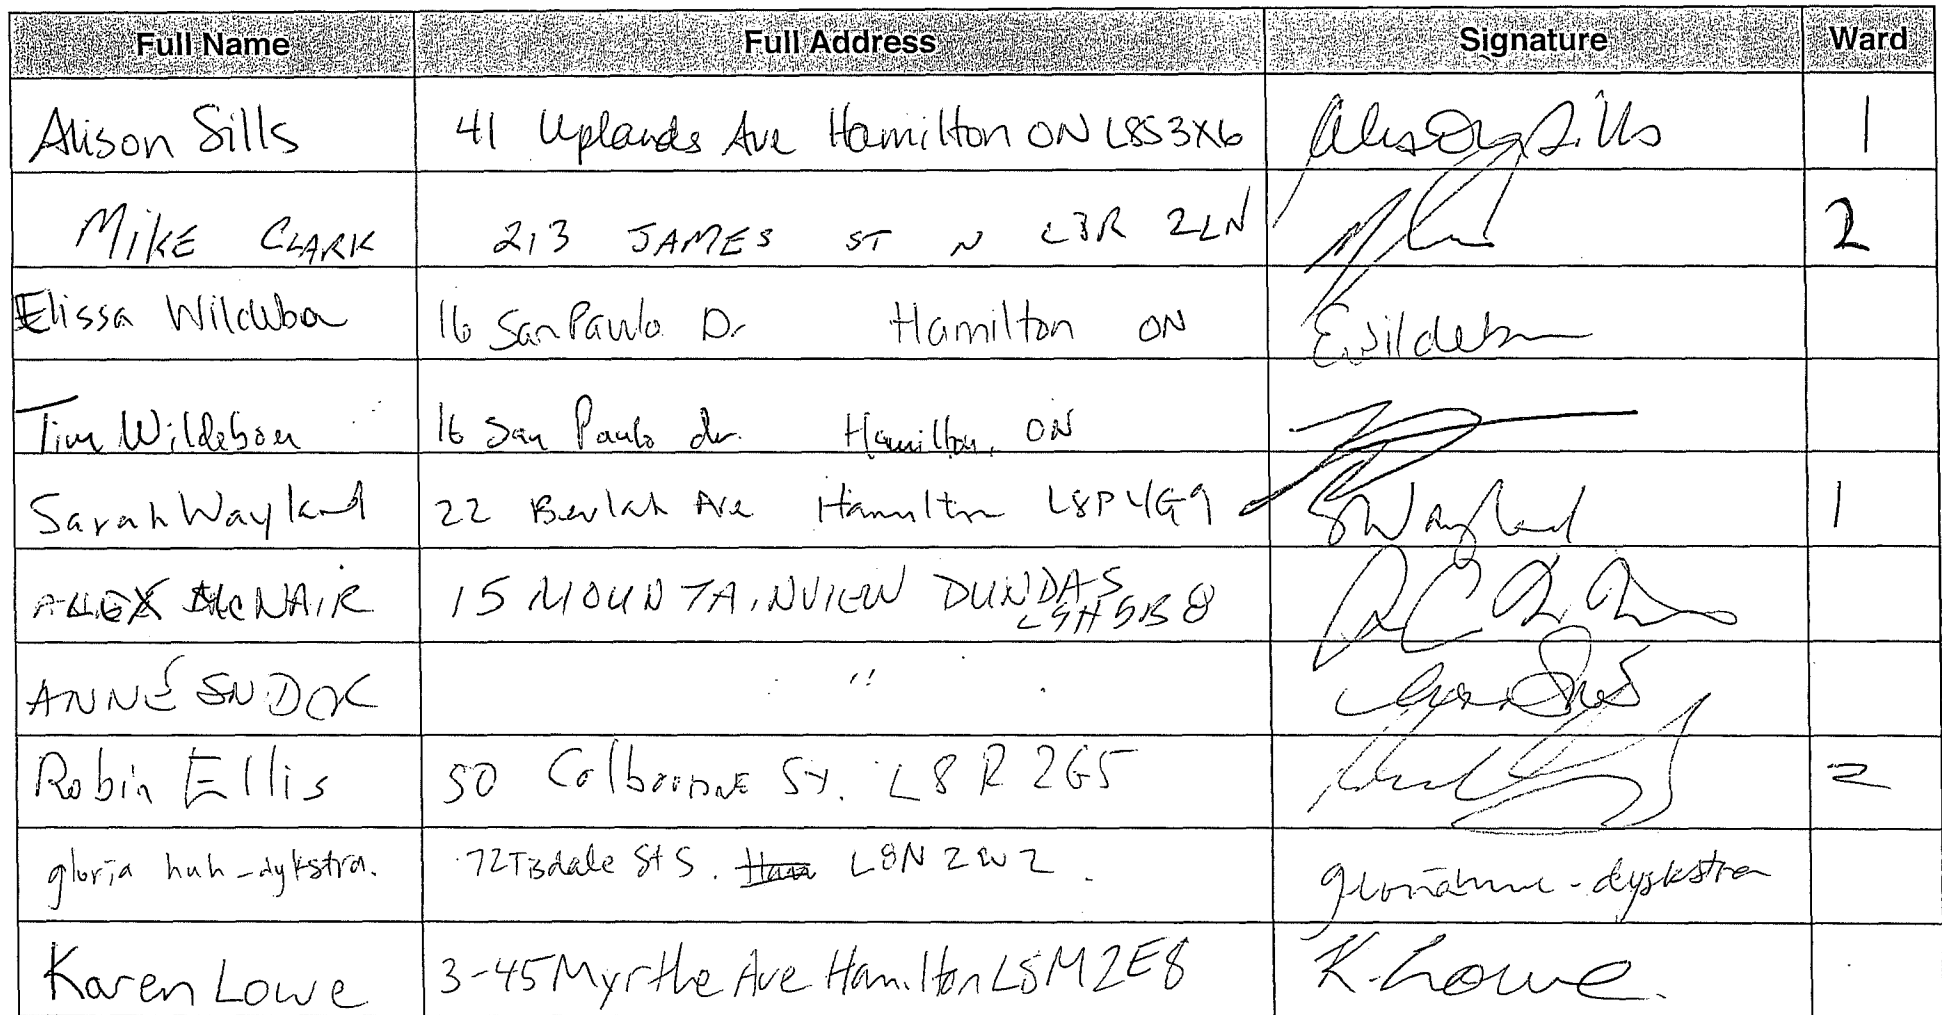 Full Name Full Address Signature Ward
Alison Sills 41 Uplands Ave Hamilton ON L8S3X6 Alison Sills 1
MIKE CLARK 213 JAMES ST N L8R 2LN 2
Elissa Wildeboer 16 San Paulo Dr Hamilton ON EWildeboer
Tim Wildeboer 16 San Paulo dr. Hamilton, ON
Sarah Wayland 22 Beulah Ave Hamilton L8P4G9 SWayland 1
ALEX McNAIR 15 MOUNTAINVIEW DUNDAS
L9H5B8
ANNE "
Robin Ellis 50 Colbourne St. L8R 2G5 2
gloria huh-dykstra. 72 Tisdale St S. L8N 2W2.
Karen Lowe 3-45 Myrtle Ave Hamilton L8M2E8 K. Lowe.